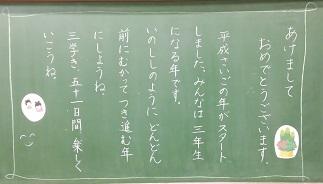 あけまして
おめでとうございます。
平成さいごの年がスタート
しました。みんなは三年生
になる年です。
いのししのように どんどん
前にむかって つき進む年
にしようね。
三学き、五十一日間 楽しく
いこうね。